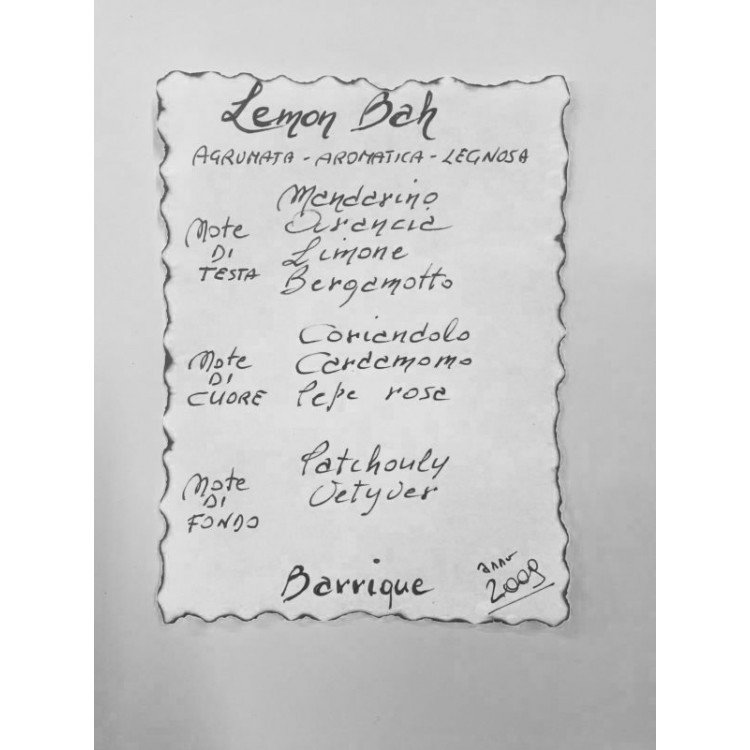 Lemon Bah
AGRUMATA - AROMATICA - LEGNOSA
Note DI TESTA
Mandarino
Arancia
Limone
Bergamotto
Note DI CUORE
Coriandolo
Cardamomo
Pepe rosa
Note DI FONDO
Patchouly
Vetyver
Barrique
anno
2009